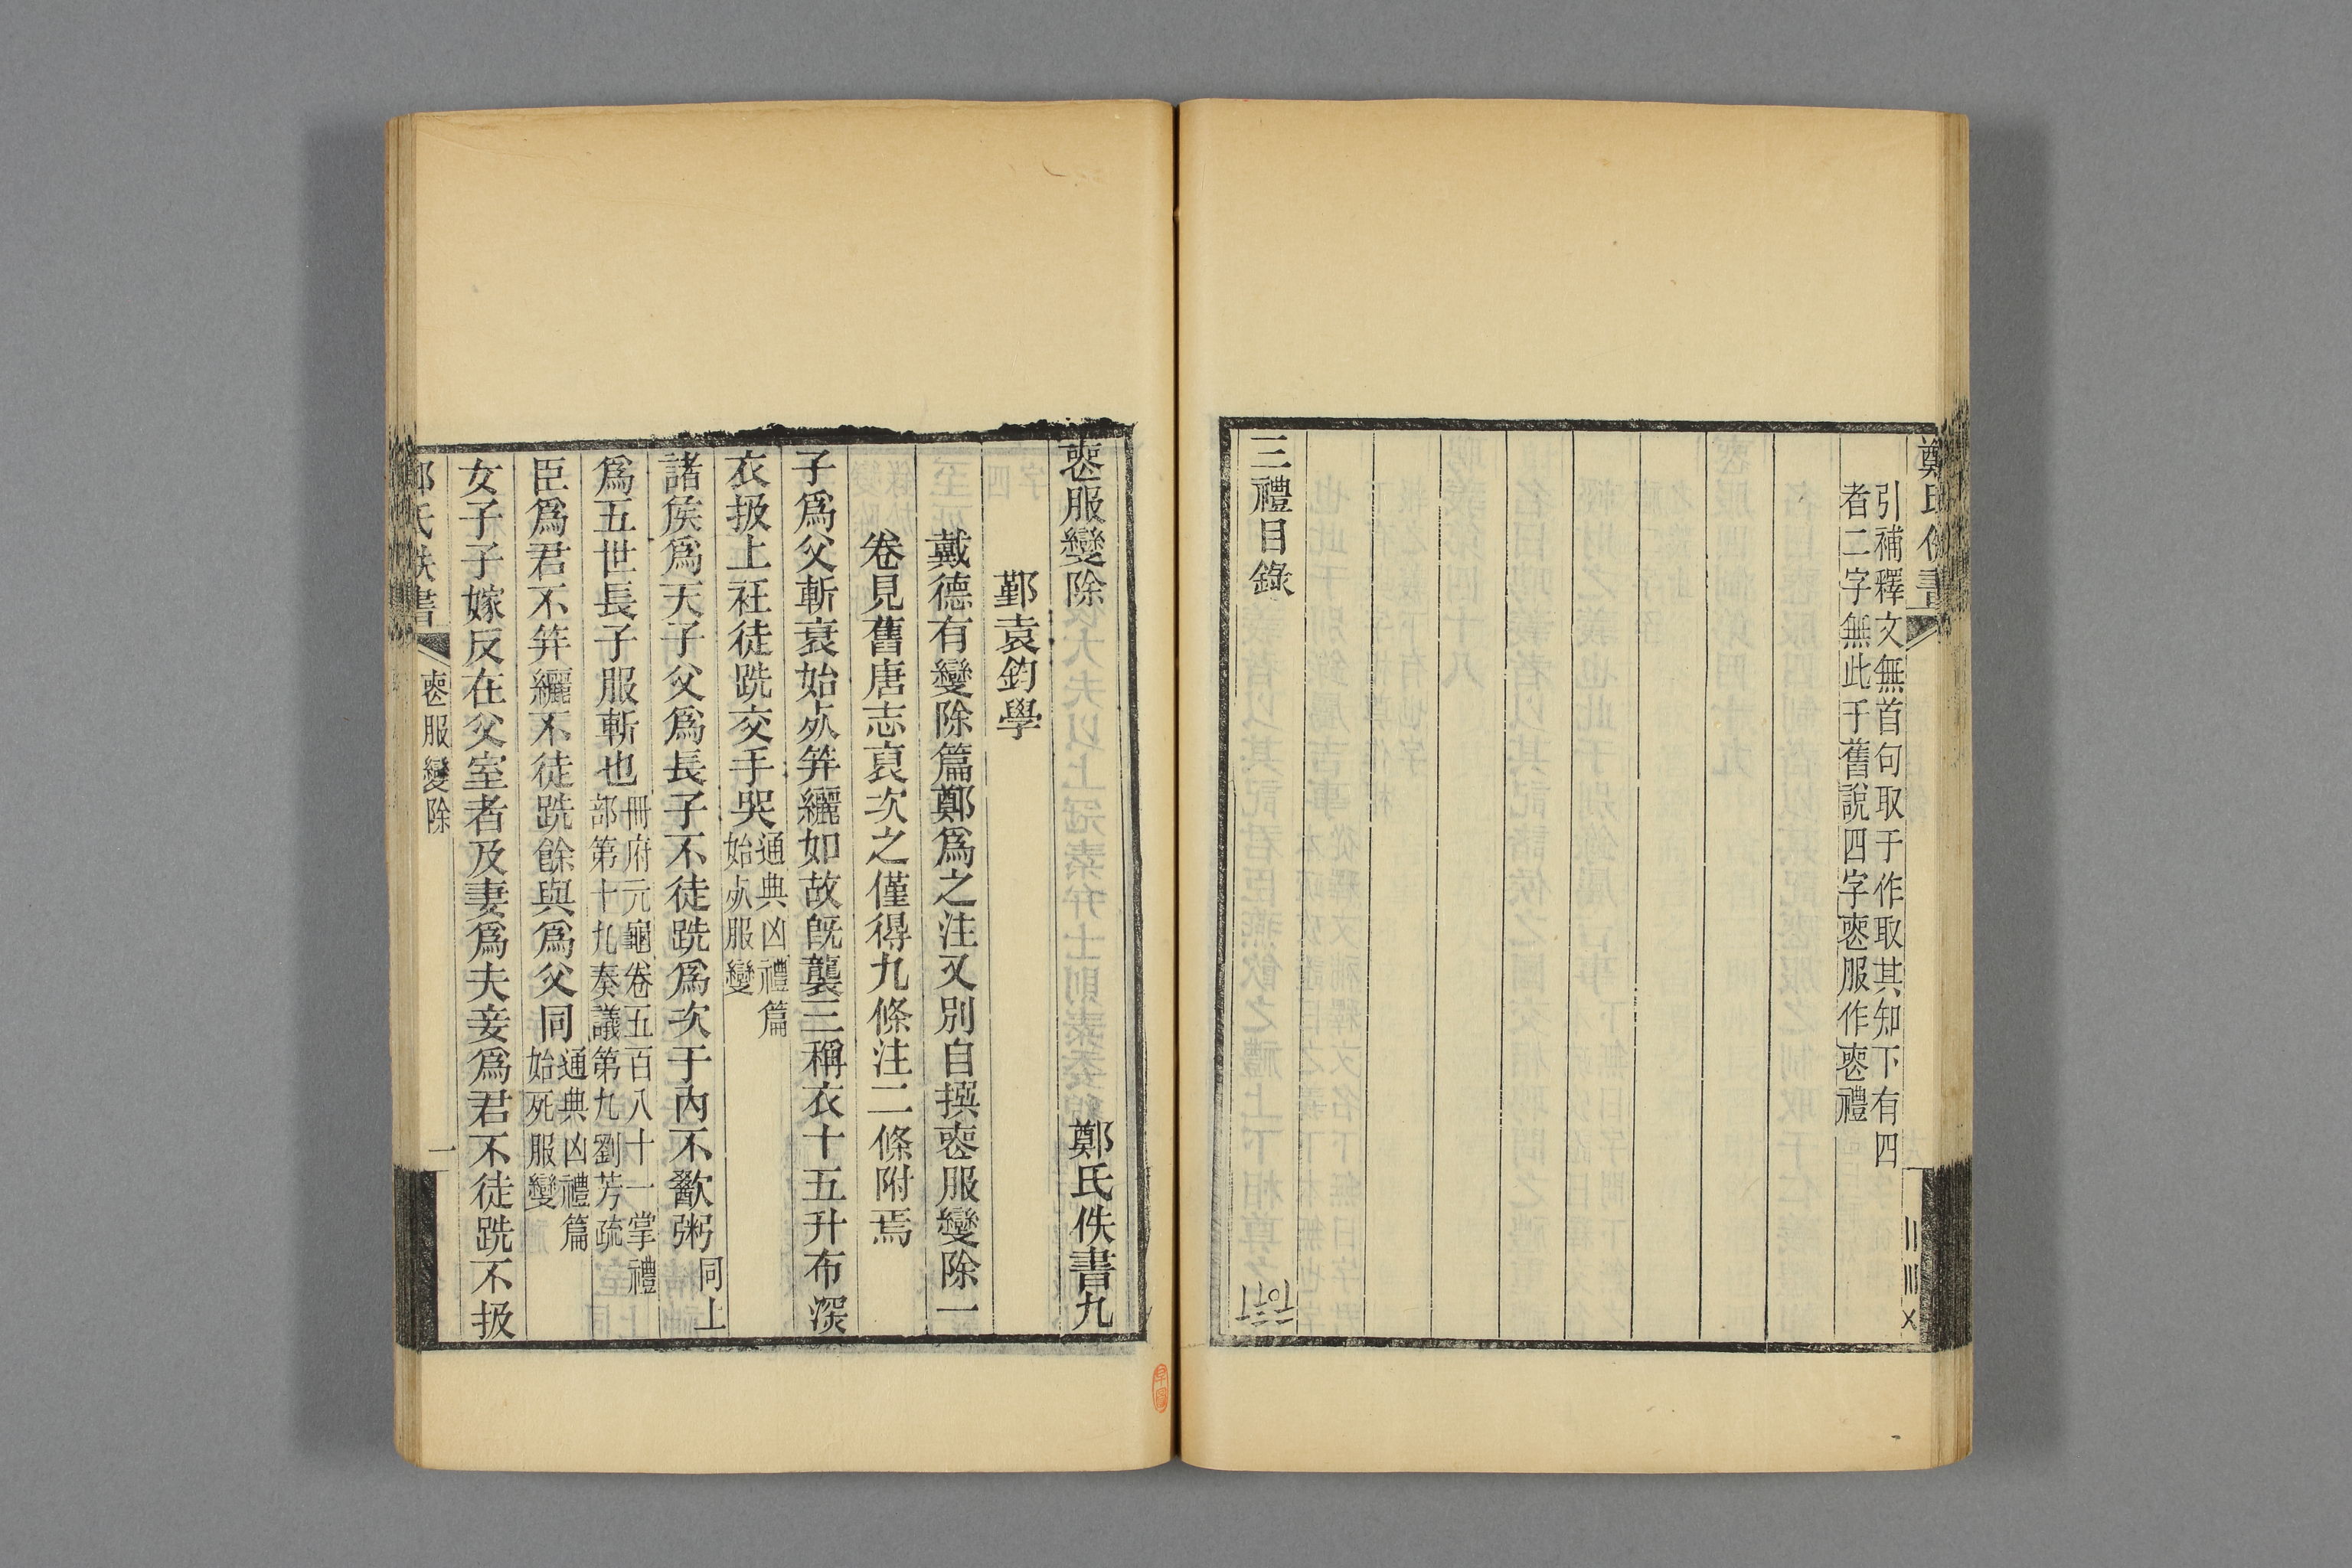 鄭氏佚書
引補釋文無首句取于作取其知下有四
者二字無此于舊說四字喪服作喪禮
三禮目錄
喪服變除
鄭氏佚書九
鄞袁鈞學
戴德有變除篇鄭爲之注又別自撰喪服變除一
卷見舊唐志裒次之僅得九條注二條附焉
子爲父斬衰始死笄纚如故旣襲三稱衣十五升布深
衣扱上衽徒跣交手哭
通典凶禮篇
始死服變
諸侯爲天子父爲長子不徒跣爲次于內不歠粥
同上
爲五世長子服斬也
冊府元龜卷五百八十一掌禮
部第十九奏議第九劉芳疏
臣爲君不笄纚不徒跣餘與爲父同
通典凶禮篇
始死服變
女子子嫁反在父室者及妻爲夫妾爲君不徒跣不扱
鄭氏佚書
喪服變除
一